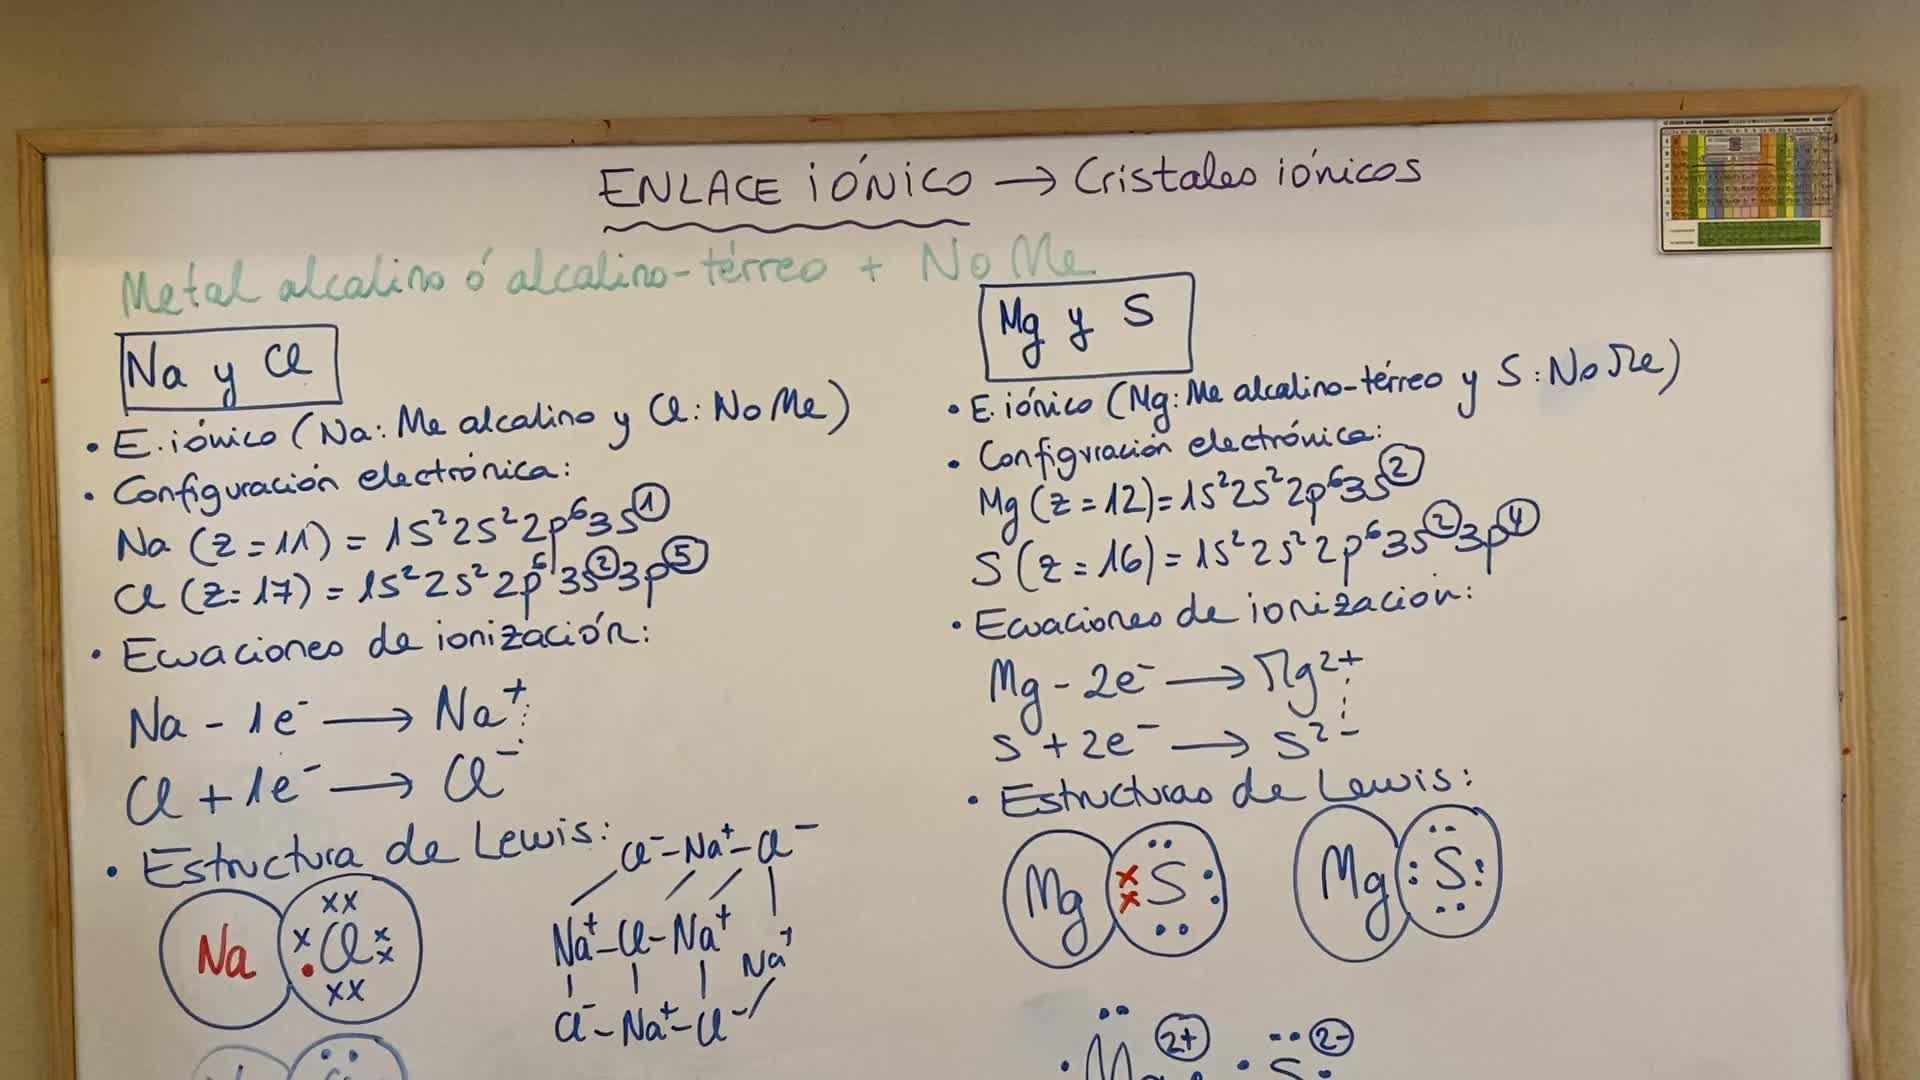 ENLACE IÓNICO → Cristales iónicos
Metal alcalino ó alcalino-térreo + No Me
Na y Cl
• E. iónico (Na: Me alcalino y Cl: No Me)
• Configuración electrónica:
Na (z = 11) = 1s² 2s² 2p⁶ 3s¹
Cl (z = 17) = 1s² 2s² 2p⁶ 3s² 3p⁵
• Ecuaciones de ionización:
Na - 1e⁻ → Na⁺
Cl + 1e⁻ → Cl⁻
• Estructura de Lewis:
Na Cl
Cl⁻ - Na⁺ - Cl⁻
Na⁺ - Cl - Na⁺
Na⁺
Cl⁻ - Na⁺ - Cl⁻
Mg y S
• E. iónico (Mg: Me alcalino-térreo y S: No Me)
• Configuración electrónica:
Mg (z = 12) = 1s² 2s² 2p⁶ 3s²
S (z = 16) = 1s² 2s² 2p⁶ 3s² 3p⁴
• Ecuaciones de ionización:
Mg - 2e⁻ → Mg²⁺
S + 2e⁻ → S²⁻
• Estructuras de Lewis:
Mg S Mg S
2+ 2-